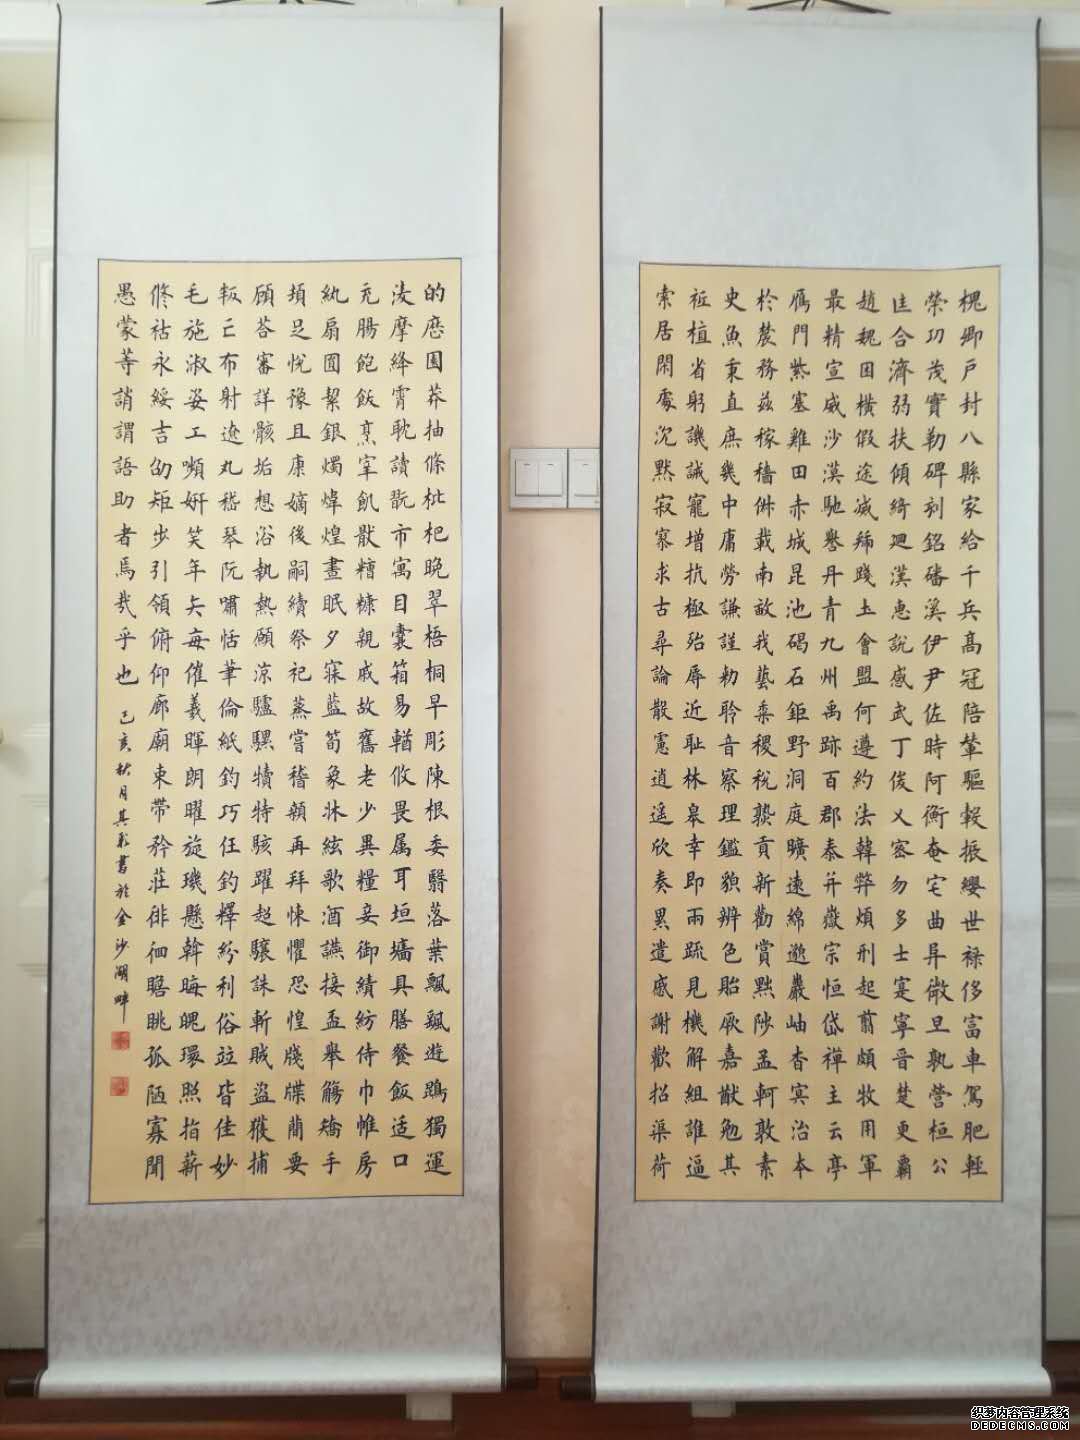 槐卿户封八縣家給千兵高冠陪輦驅轂振纓世祿侈富車駕肥輕
策功茂實勒碑刻銘磻溪伊尹佐時阿衡奄宅曲阜微旦孰營桓公
匡合濟弱扶傾綺迴漢惠說感武丁俊乂密勿多士寔寧晉楚更霸
趙魏困橫假途滅虢踐土會盟何遵約法韓弊煩刑起翦頗牧用軍
最精宣威沙漠馳譽丹青九州禹跡百郡秦并嶽宗恒岱禪主云亭
雁門紫塞雞田赤城昆池碣石鉅野洞庭曠遠綿邈巖岫杳冥治本
於農務茲稼穡俶載南畝我藝黍稷稅熟貢新勸賞黜陟孟軻敦素
史魚秉直庶幾中庸勞謙謹勅聆音察理鑑貌辨色貽厥嘉猷勉其
祗植省躬譏誡寵增抗極殆辱近耻林皋幸即兩疏見機解組誰逼
索居閑處沉默寂寥求古尋論散慮逍遙欣奏累遣慼謝歡招渠荷
的歷園莽抽條枇杷晚翠梧桐早彫陳根委翳落葉飄颻遊鵾獨運
凌摩絳霄耽讀翫市寓目囊箱易輶攸畏属耳垣牆具膳餐飯适口
充腸飽飫烹宰飢厭糟糠親戚故舊老少異糧妾御績紡侍巾帷房
紈扇圓絜銀燭煒煌晝眠夕寐藍筍象牀絃歌酒讌接盃舉觴矯手
頓足悅豫且康嫡後嗣續祭祀蒸嘗稽顙再拜悚懼恐惶牋牒簡要
顧答審詳骸垢想浴執熱願涼驢騾犢特駭躍超驤誅斬賊盜獲捕
叛亡布射遼丸嵇琴阮嘯恬筆倫紙鈞巧任釣釋紛利俗竝皆佳妙
毛施淑姿工嚬妍笑年矢每催羲暉朗曜旋璣懸斡晦魄環照指薪
修祜永綏吉劭矩步引領俯仰廊廟束帶矜莊徘徊瞻眺孤陋寡聞
愚蒙等誚謂語助者焉哉乎也 己亥秋月其書於金沙湖畔
织梦内容管理系统
DEDECMS.COM